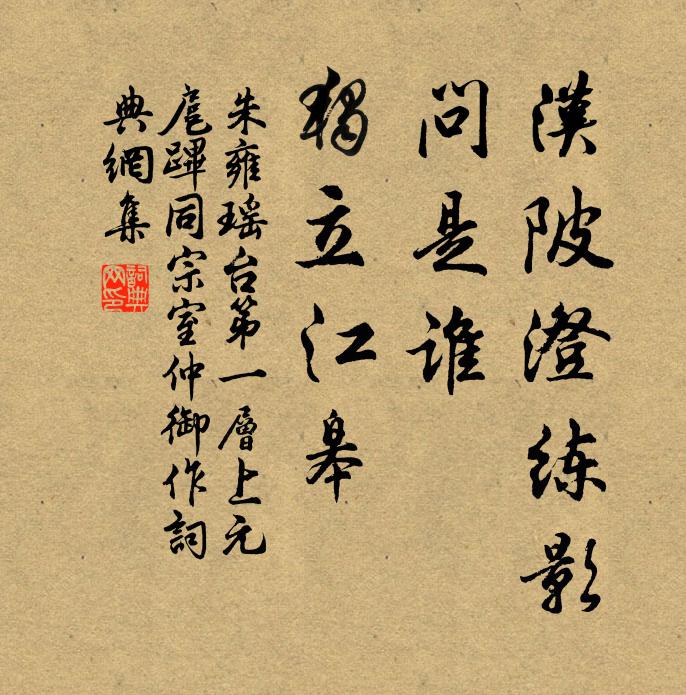 漢陂澄练影
問是誰
獨立江皋
朱雍瑶台第一層上元
扈蹕同宗室仲御作詞
典網集
詞典网印